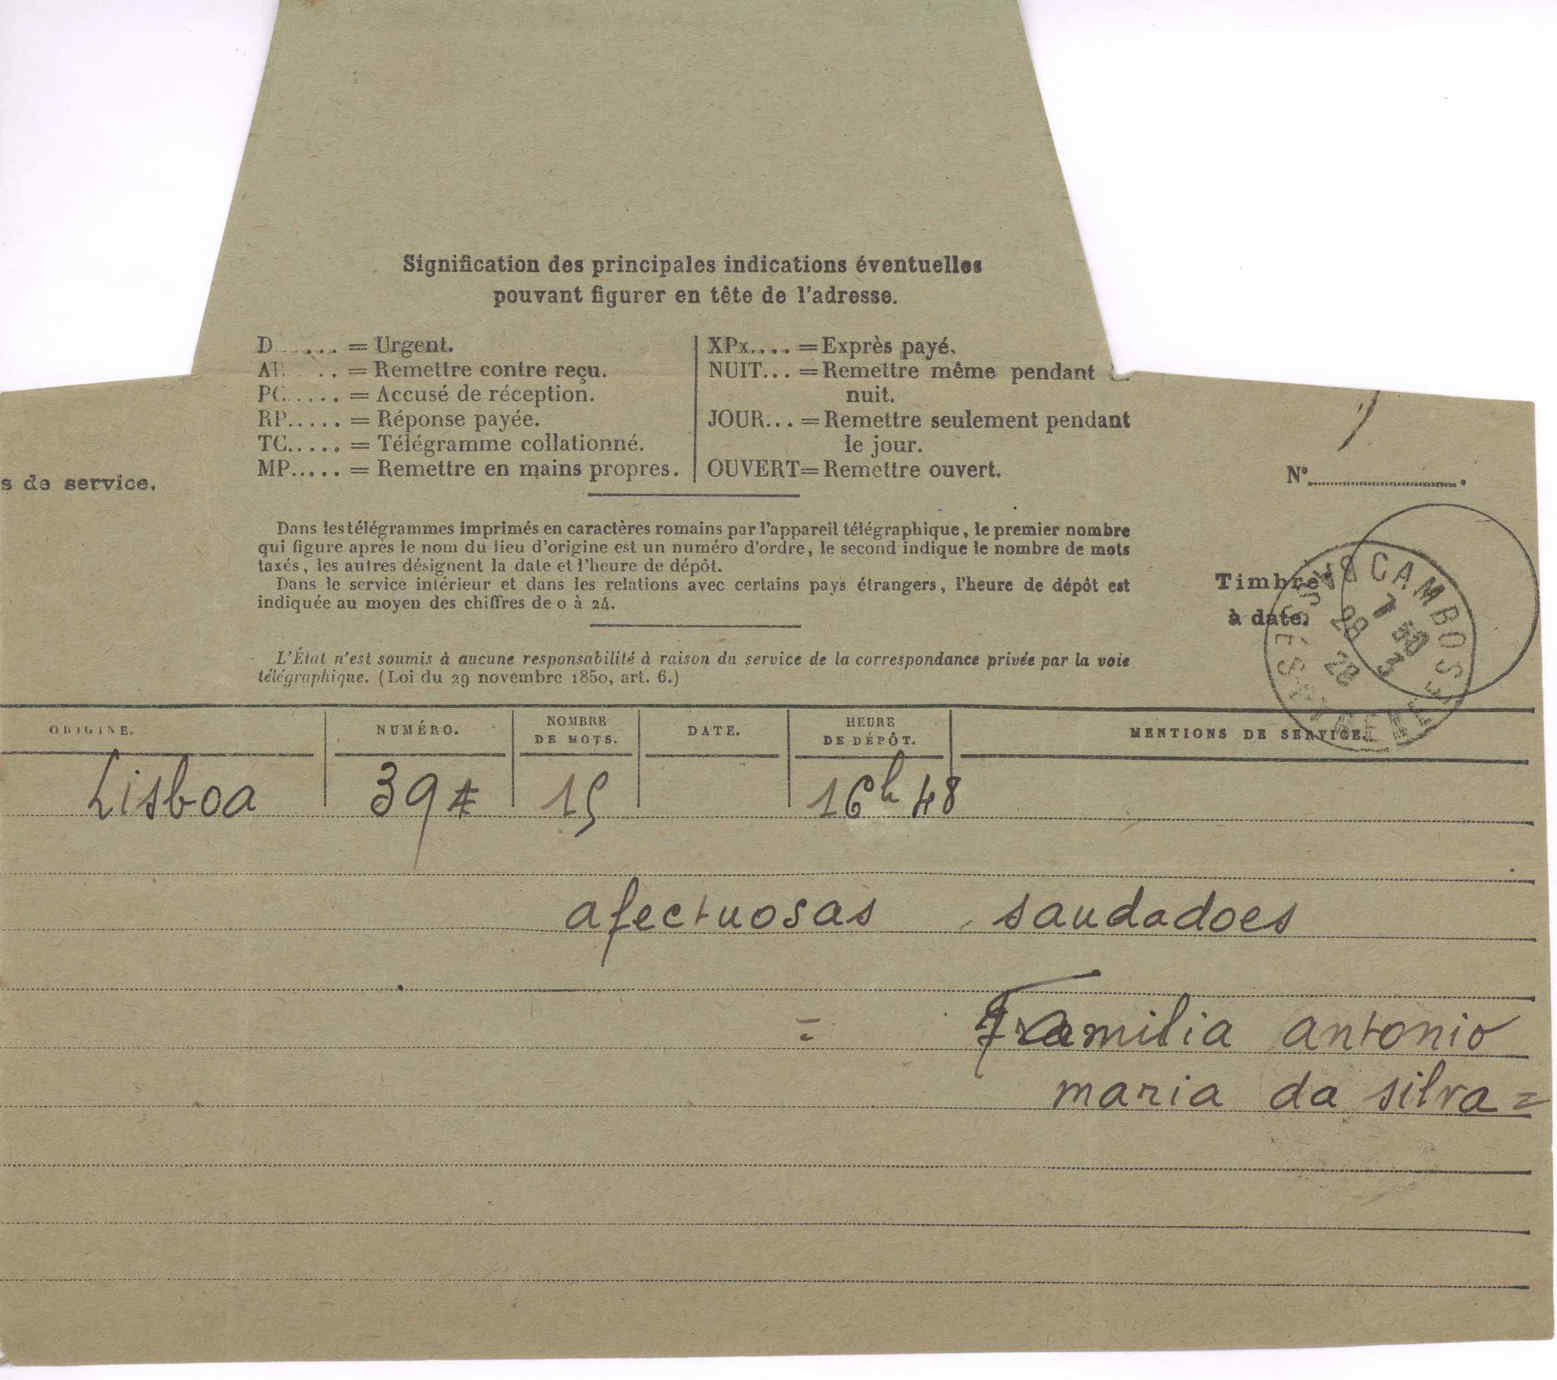 Signification des principales indications éventuelles
pouvant figurer en tête de l'adresse.
D...... = Urgent.
.. = Remettre contre reçu.
PC..... = Accusé de réception.
RP..... = Réponse payée.
TC..... = Télégramme collationné.
MP..... = Remettre en mains propres.
XPx.... = Exprès payé.
NUIT... = Remettre même pendant
nuit.
JOUR... = Remettre seulement pendant
le jour.
OUVERT = Remettre ouvert.
s de service.
N°
Dans les télégrammes imprimés en caractères romains par l'appareil télégraphique, le premier nombre
qui figure après le nom du lieu d'origine est un numéro d'ordre, le second indique le nombre de mots
taxés, les autres désignent la date et l'heure de dépôt.
Dans le service intérieur et dans les relations avec certains pays étrangers, l'heure de dépôt est
indiquée au moyen des chiffres de 0 à 24.
Timbre
à date.
CAMBO
7 30
28 3
28
L'État n'est soumis à aucune responsabilité à raison du service de la correspondance privée par la voie
télégraphique. (Loi du 29 novembre 1850, art. 6.)
ORIGINE. NUMÉRO. NOMBRE DE MOTS. DATE. HEURE DE DÉPÔT. MENTIONS DE SERVICE.
Lisboa 39 15 16h48
afectuosas saudadoes
= Familia antonio
maria da silva =